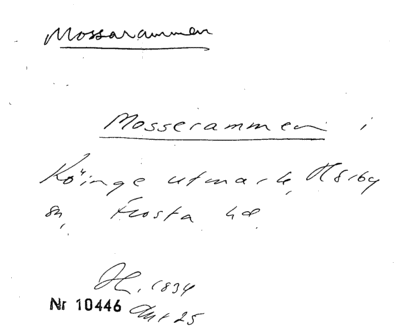 Mossarammen
Mosserammen i
Köinge utmark, Hörby
sn, Frosta hd.
1834
Nr 10446 Akt 25